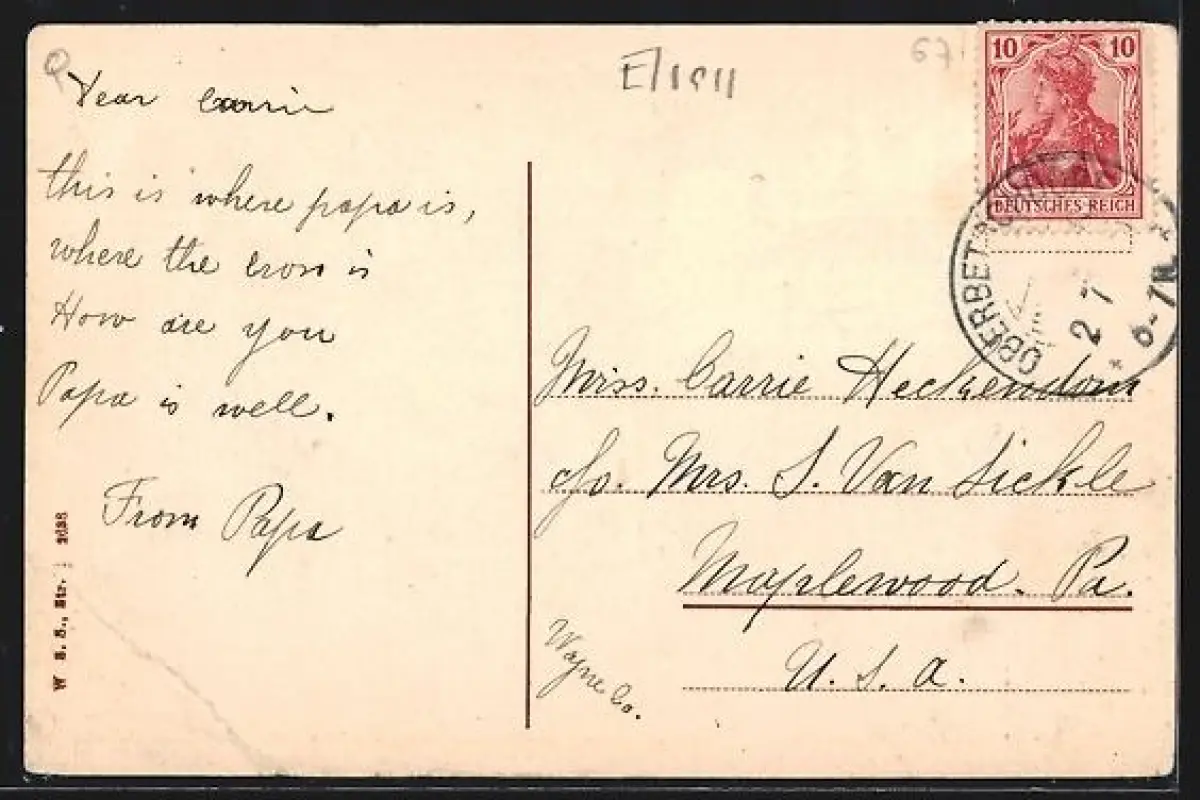 Dear Carrie
this is where papa is,
where the cross is
How are you
Papa is well.
From Papa
W. S. S., Str. 2636
E/1911
67
10 10
DEUTSCHES REICH
OBERBET
2 7
6-7N.
Miss. Carrie Heckendorn
c/o. Mrs. S. Van Sickle
Maplewood. Pa.
Wayne Co.
U. S. A.